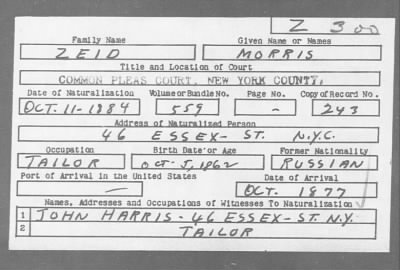 Z 300
Family Name Given Name or Names
ZEID MORRIS
Title and Location of Court
COMMON PLEAS COURT, NEW YORK COUNTY,
Date of Naturalization Volume or Bundle No. Page No. Copy of Record No.
OCT. 11-1884 559 - 243
Address of Naturalized Person
46 ESSEX- ST. N.Y.C.
Occupation Birth Date or Age Former Nationality
TAILOR OCT. 5, 1862 RUSSIAN
Port of Arrival in the United States Date of Arrival
— OCT. 1877
Names, Addresses and Occupations of Witnesses To Naturalization
1 JOHN HARRIS - 46 ESSEX-ST. N.Y.
2 TAILOR